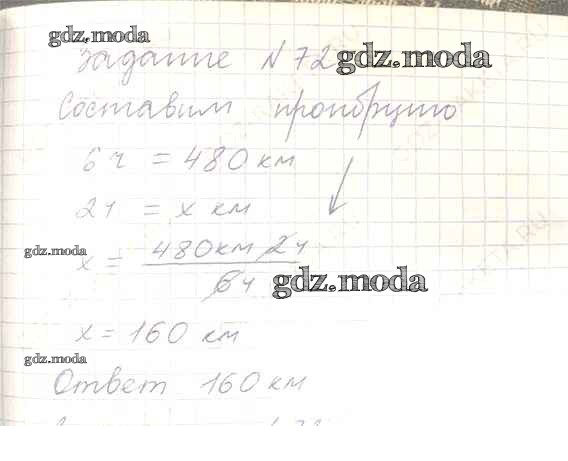 gdz.moda
Задание N 72
gdz.moda
Составим пропорцию
6 ч = 480 км
2 ч = x км
gdz.moda
x = 480 км 2ч
6 ч
gdz.moda
x = 160 км
gdz.moda
Ответ 160 км